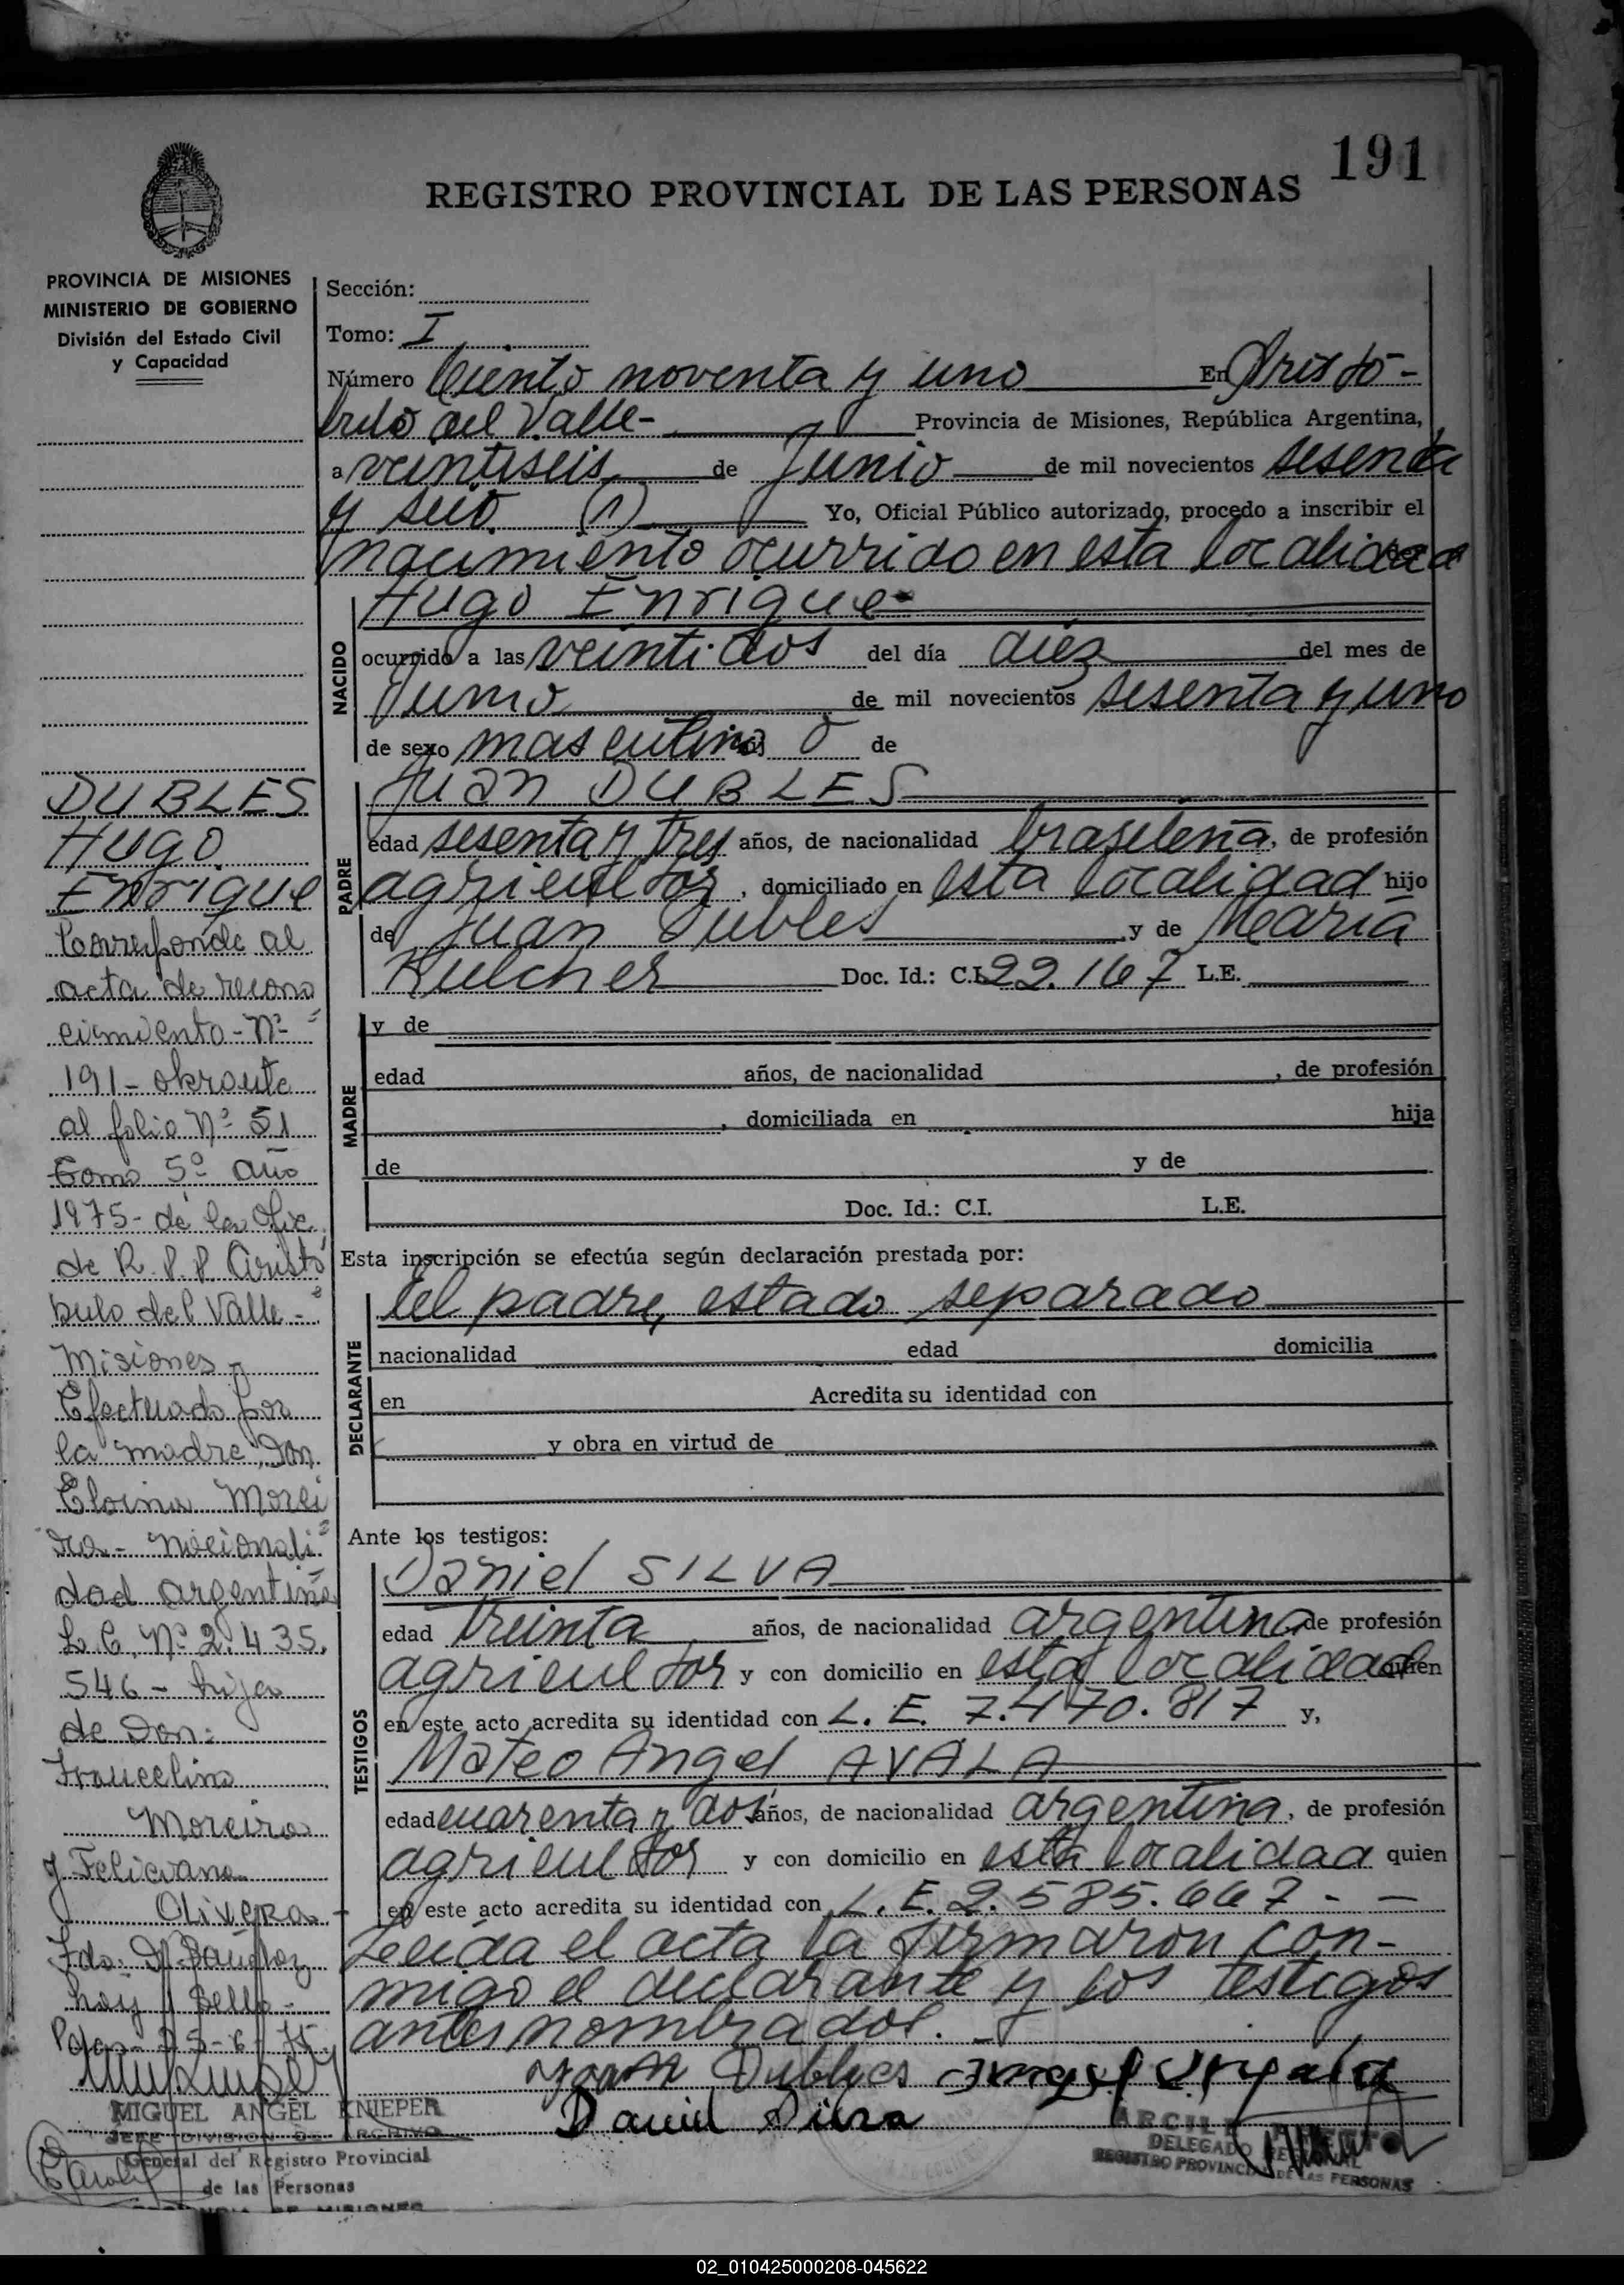 191
REGISTRO PROVINCIAL DE LAS PERSONAS
PROVINCIA DE MISIONES
MINISTERIO DE GOBIERNO
División del Estado Civil
y Capacidad
DUBLES
Hugo
Enrique
Corresponde al
acta de recono
cimiento - Nº
191 - obrante
al folio Nº 51
Tomo 5º año
1975 - de la Ofic.
de R. P. P. Aristó
bulo del Valle -
Misiones -
Efectuado por
la madre, Don
Eloina Morei
ra - nacionali
dad argentina
L. C. Nº 2.435.
546 - hija
de Don:
Francelino
Moreira
y Feliciana
Olivera
Fdo:
hay Sello -
25-6-75
MIGUEL ANGEL KNIEPER
JEFE DIVISION DE ARCHIVO
General del Registro Provincial
de las Personas
PROVINCIA DE MISIONES
Sección:
Tomo: I
Número Ciento noventa y uno En Aristó-
bulo del Valle- Provincia de Misiones, República Argentina,
a veintiseis de Junio de mil novecientos sesenta
y seis (1) Yo, Oficial Público autorizado, procedo a inscribir el
nacimiento ocurrido en esta localidad
NACIDO
Hugo Enrique
ocurrido a las veintidos del día diez del mes de
Junio de mil novecientos sesenta y uno
de sexo masculino de
PADRE
Juan DUBLES
edad sesenta y tres años, de nacionalidad brasileña, de profesión
agricultor, domiciliado en esta localidad hijo
de Juan Dubles y de María
Kulcher Doc. Id.: C.I. 22.167 L.E.
MADRE
y de
edad años, de nacionalidad , de profesión
, domiciliada en hija
de y de
Doc. Id.: C.I. L.E.
Esta inscripción se efectúa según declaración prestada por:
DECLARANTE
El padre, estado separado
nacionalidad edad domicilia
en Acredita su identidad con
y obra en virtud de
Ante los testigos:
TESTIGOS
Daniel SILVA
edad treinta años, de nacionalidad argentina de profesión
agricultor y con domicilio en esta localidad quien
en este acto acredita su identidad con L. E. 7.470.817 y,
Mateo Angel AYALA
edad cuarenta y dos años, de nacionalidad argentina, de profesión
agricultor y con domicilio en esta localidad quien
en este acto acredita su identidad con L. E. 2.585.667 - -
Leída el acta la firmaron con-
migo el declarante y los testigos
antes nombrados. -
Juan Dubles
Daniel Silva
DELEGADO
REGISTRO PROVINCIAL DE LAS PERSONAS
02_010425000208-045622